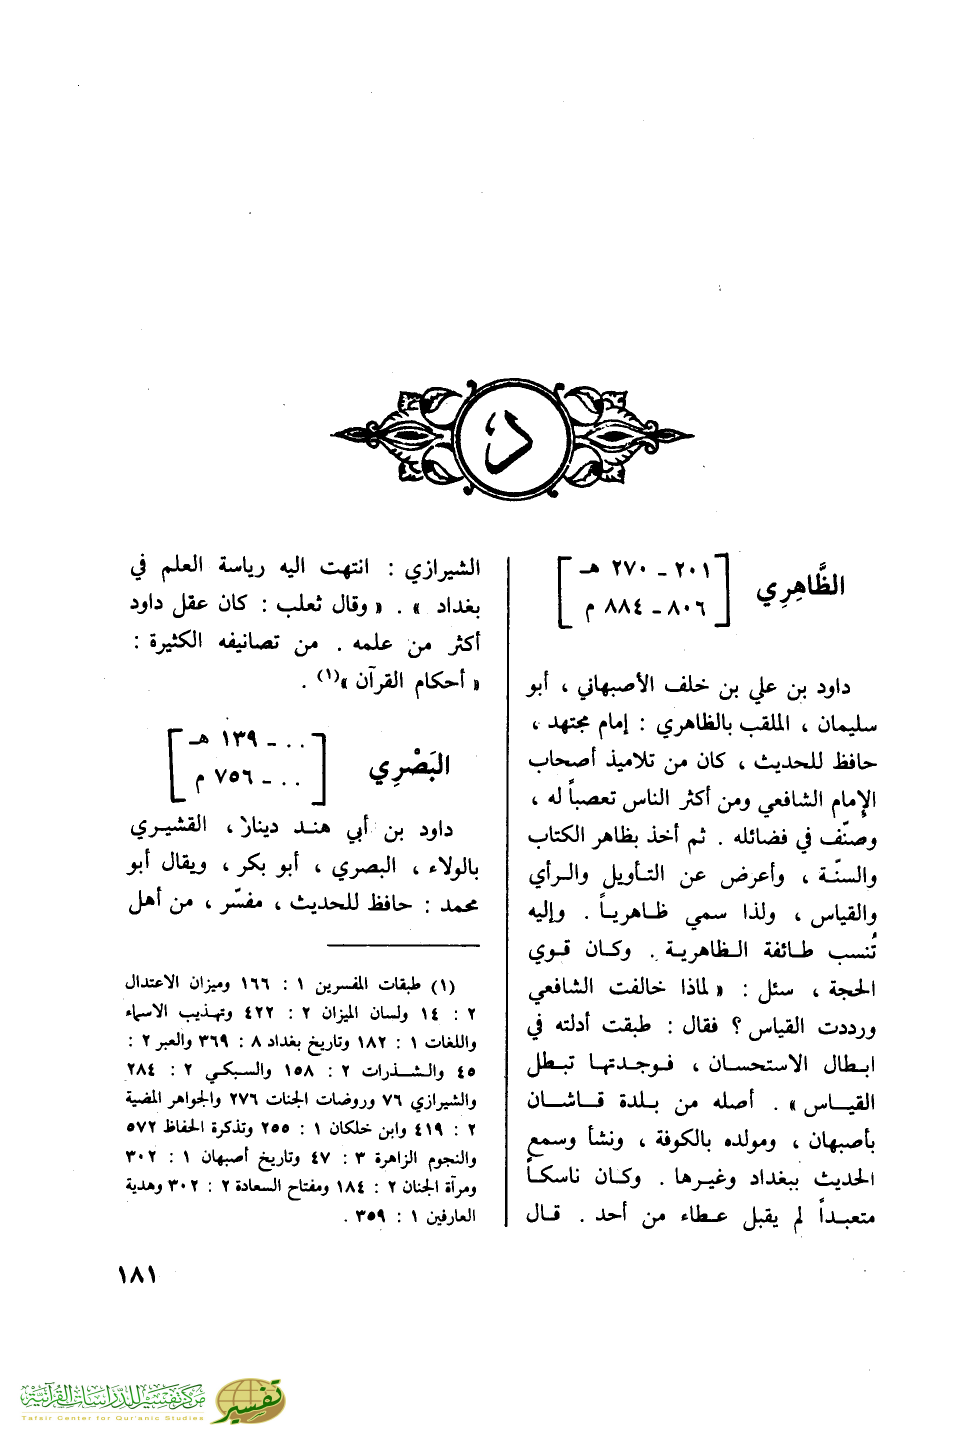 د
الظَّاهِرِي
٢٠١ ـ ٢٧٠ هـ
٨٠٦ ـ ٨٨٤ م
داود بن علي بن خلف الأصبهاني ، أبو
سليمان ، الملقب بالظاهري : إمام مجتهد ،
حافظ للحديث ، كان من تلاميذ أصحاب
الإمام الشافعي ومن أكثر الناس تعصباً له ،
وصنّف في فضائله . ثم أخذ بظاهر الكتاب
والسنّة ، وأعرض عن التأويل والرأي
والقياس ، ولذا سمي ظاهرياً . وإليه
تُنسب طائفة الظاهرية . وكان قوي
الحجة ، سئل : « لماذا خالفت الشافعي
ورددت القياس ؟ فقال : طبقت أدلته في
ابطال الاستحسان ، فوجدتها تبطل
القياس » . أصله من بلدة قاشان
بأصبهان ، ومولده بالكوفة ، ونشأ وسمع
الحديث ببغداد وغيرها . وكان ناسكاً
متعبداً لم يقبل عطاء من أحد . قال
الشيرازي : انتهت اليه رياسة العلم في
بغداد » . « وقال ثعلب : كان عقل داود
أكثر من علمه . من تصانيفه الكثيرة :
« أحكام القرآن »(١) .
البَصْرِي
.. ـ ١٣٩ هـ
.. ـ ٧٥٦ م
داود بن أبي هند دينار ، القشيري
بالولاء ، البصري ، أبو بكر ، ويقال أبو
محمد : حافظ للحديث ، مفسّر ، من أهل
(١) طبقات المفسرين ١ : ١٦٦ وميزان الاعتدال
٢ : ١٤ ولسان الميزان ٢ : ٤٢٢ وتهذيب الاسماء
واللغات ١ : ١٨٢ وتاريخ بغداد ٨ : ٣٦٩ والعبر ٢ :
٤٥ والشذرات ٢ : ١٥٨ والسبكي ٢ : ٢٨٤
والشيرازي ٧٦ وروضات الجنات ٢٧٦ والجواهر المضية
٢ : ٤١٩ وابن خلكان ١ : ٢٥٥ وتذكرة الحفاظ ٥٧٢
والنجوم الزاهرة ٣ : ٤٧ وتاريخ أصبهان ١ : ٣٠٢
ومرآة الجنان ٢ : ١٨٤ ومفتاح السعادة ٢ : ٣٠٢ وهدية
العارفين ١ : ٣٥٩ .
١٨١
مركز تفسير للدراسات القرآنية
Tafsir Center for Qur'anic Studies
تفسير